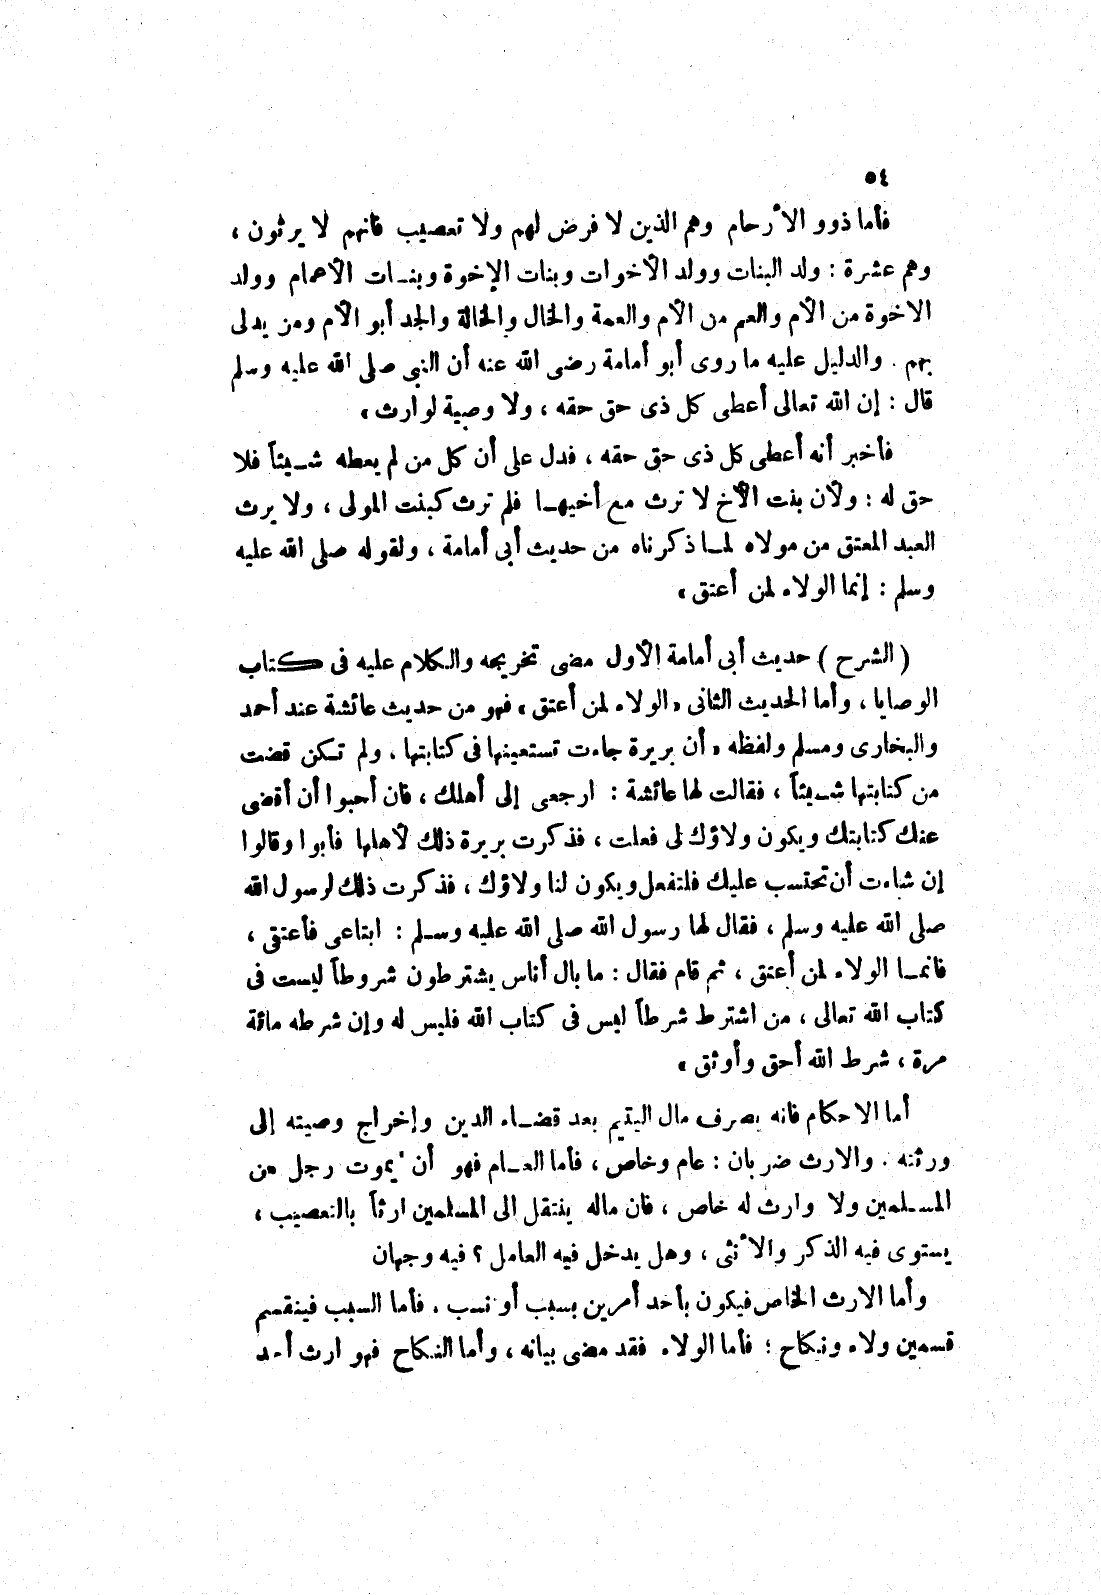 ٥٤
فأما ذوو الأرحام وهم الذين لا فرض لهم ولا تعصيب فانهم لا يرثون ،
وهم عشرة : ولد البنات وولد الأخوات وبنات الإخوة وبنـات الأعمام وولد
الاخوة من الأم والعم من الأم والعمة والخال والخالة والجد أبو الأم ومن يدلى
بهم . والدليل عليه ما روى أبو أمامة رضى الله عنه أن النبى صلى الله عليه وسلم
قال : إن الله تعالى أعطى كل ذى حق حقه ، ولا وصية لوارث »
فأخبر أنه أعطى كل ذى حق حقه ، فدل على أن كل من لم يعطه شـيئاً فلا
حق له : ولأن بنت الأخ لا ترث مع أخيهـا فلم ترث كبنت المولى ، ولا يرث
العبد المعتق من مولاه لمـا ذكرناه من حديث أبى أمامة ، ولقوله صلى الله عليه
وسلم : إنما الولاء لمن أعتق »
( الشرح ) حديث أبى أمامة الأول مضى تخريجه والكلام عليه فى كتاب
الوصايا ، وأما الحديث الثانى « الولاء لمن أعتق » فهو من حديث عائشة عند أحمد
والبخارى ومسلم ولفظه « أن بريرة جاءت تستعينها فى كتابتها ، ولم تكن قضت
من كتابتها شـيئاً ، فقالت لها عائشة : ارجعى إلى أهلك ، فان أحبوا أن أقضى
عنك كتابتك ويكون ولاؤك لى فعلت ، فذكرت بريرة ذلك لأهلها فأبوا وقالوا
إن شاءت أن تحتسب عليك فلتفعل ويكون لنا ولاؤك ، فذكرت ذلك لرسول الله
صلى الله عليه وسلم ، فقال لها رسول الله صلى الله عليه وسـلم : ابتاعى فأعتقى ،
فانمـا الولاء لمن أعتق ، ثم قام فقال : ما بال أناس يشترطون شروطاً ليست فى
كتاب الله تعالى ، من اشترط شرطاً ليس فى كتاب الله فليس له وإن شرطه مائة
مرة ، شرط الله أحق وأوثق »
أما الاحكام فانه يصرف مال اليتيم بعد قضـاء الدين وإخراج وصيته إلى
ورثته . والارث ضربان : عام وخاص ، فأما العـام فهو أن يموت رجل من
المسـلمين ولا وارث له خاص ، فان ماله ينتقل الى المسلمين ارثاً بالتعصيب ،
يستوى فيه الذكر والأنثى ، وهل يدخل فيه العامل ؟ فيه وجهان
وأما الارث الخاص فيكون بأحد أمرين بسبب أو نسب . فأما السبب فينقسم
قسمين ولاء ونكاح ؛ فأما الولاء فقد مضى بيانه ، وأما النكاح فهو ارث أحد